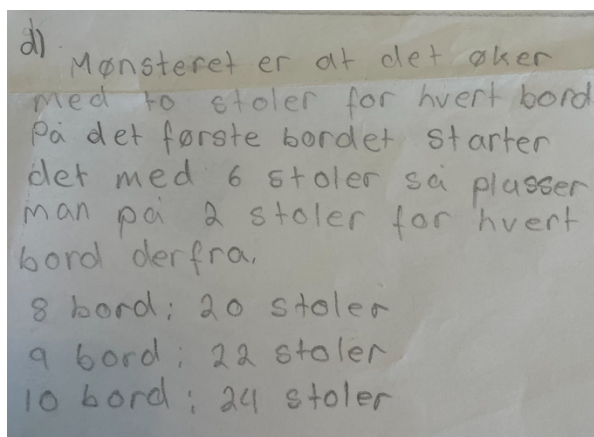 d)
Mønsteret er at det øker
med to stoler for hvert bord
På det første bordet starter
det med 6 stoler så plusser
man på 2 stoler for hvert
bord derfra.
8 bord: 20 stoler
9 bord: 22 stoler
10 bord: 24 stoler